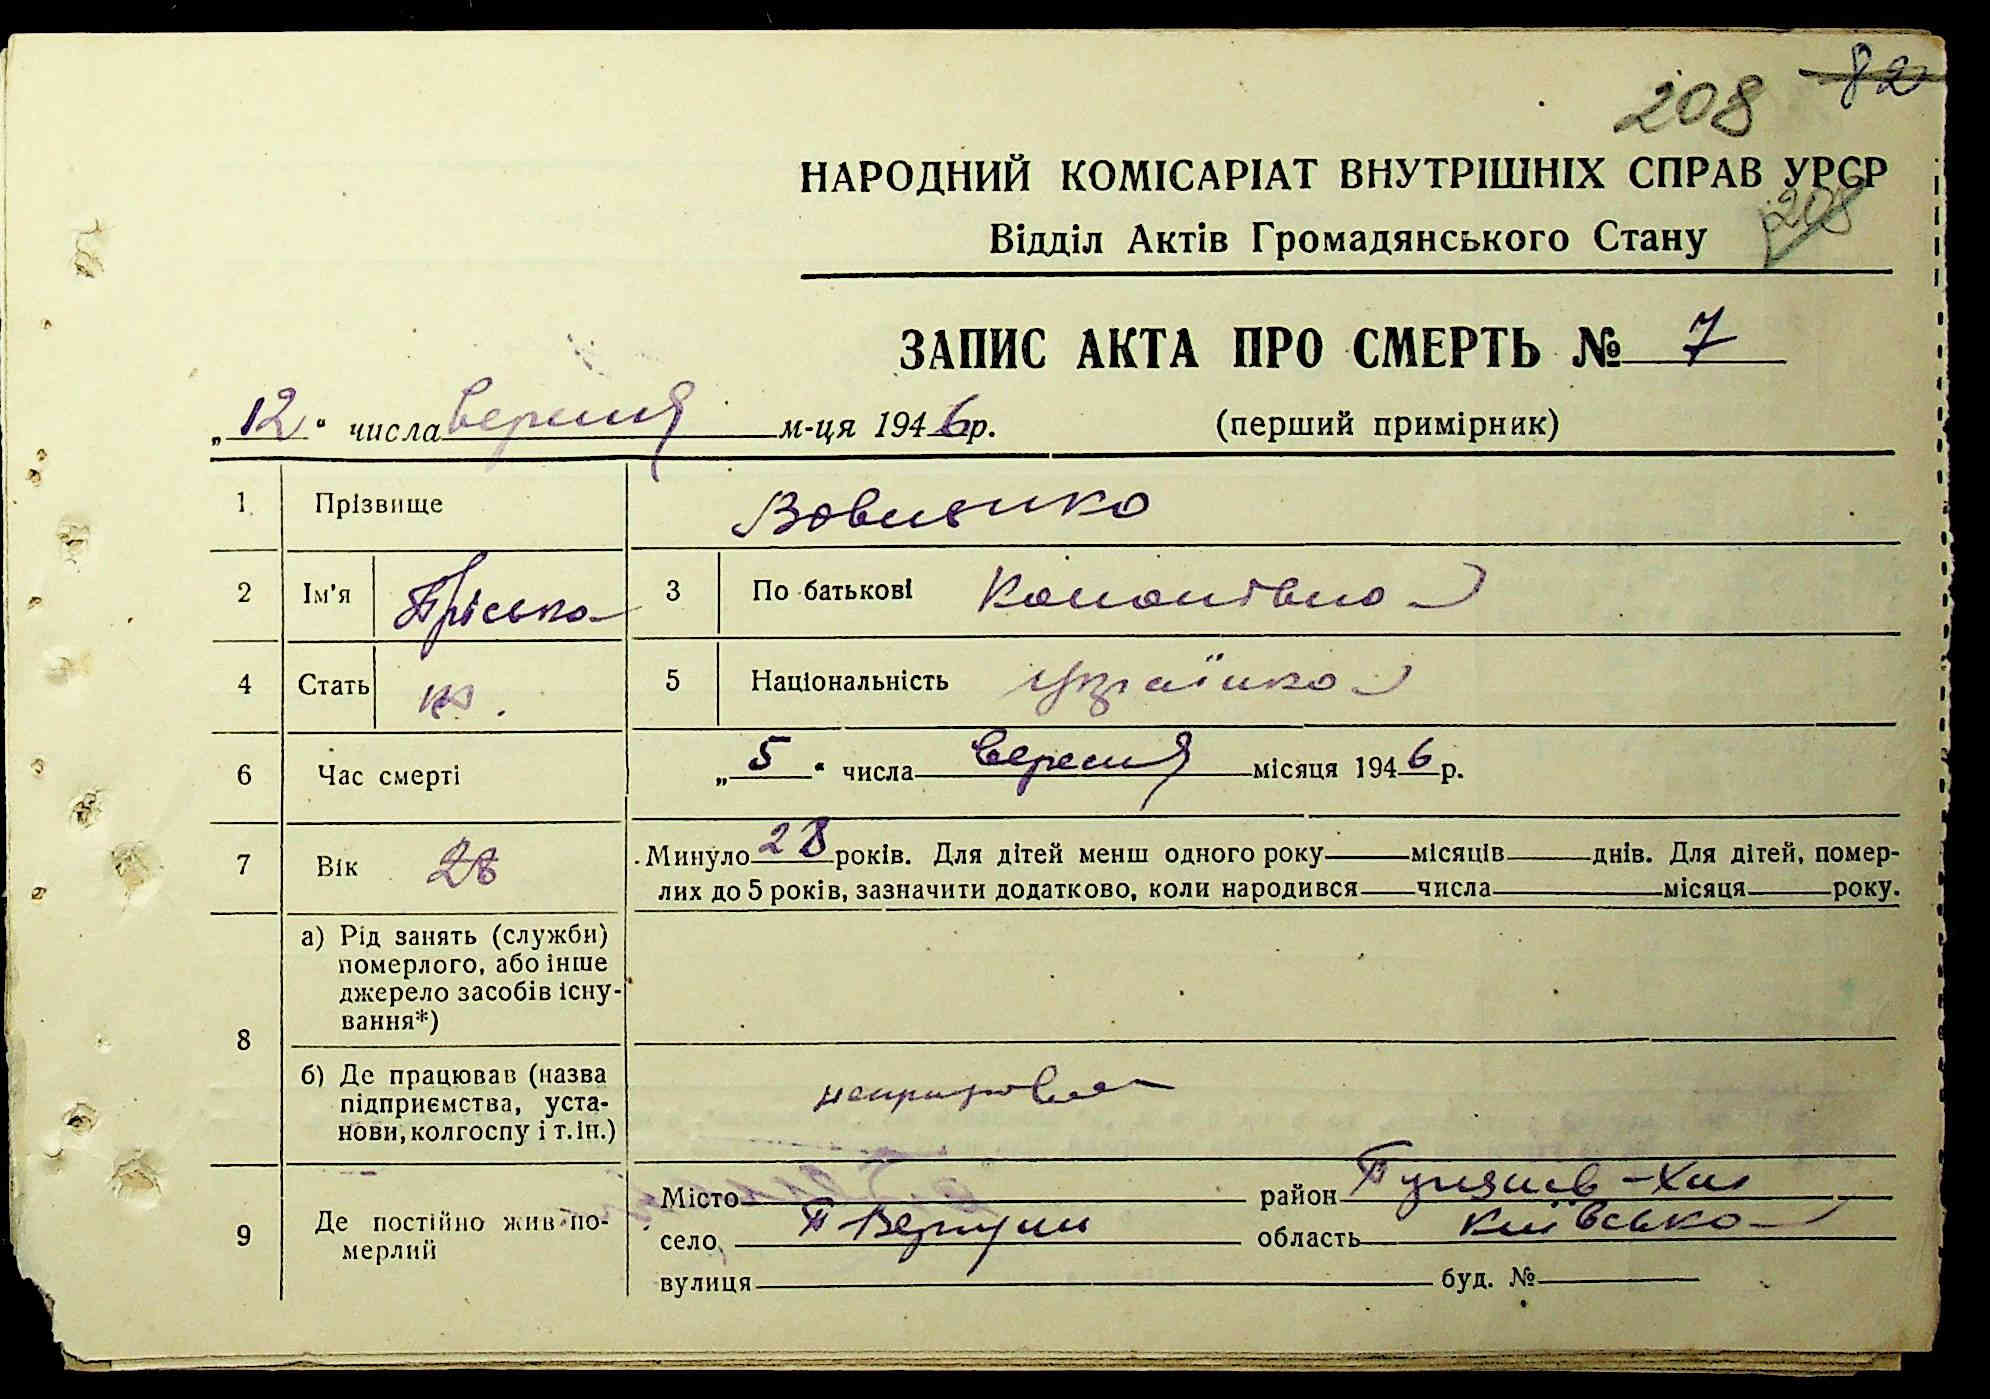 82
208
НАРОДНИЙ КОМІСАРІАТ ВНУТРІШНІХ СПРАВ УРСР
208
Відділ Актів Громадянського Стану
ЗАПИС АКТА ПРО СМЕРТЬ № 7
„12“ числа вересня м-ця 1946р. (перший примірник)
1 Прізвище Вовченко
2 Ім'я Пріська 3 По батькові Кононівна
4 Стать ж. 5 Національність українка
6 Час смерті „5“ числа вересня місяця 1946р.
7 Вік 28 Минуло 28 років. Для дітей менш одного року місяців днів. Для дітей, помер-
лих до 5 років, зазначити додатково, коли народився числа місяця року.
8 а) Рід занять (служби)
померлого, або інше
джерело засобів існу-
вання*)
б) Де працював (назва
підприємства, уста-
нови, колгоспу і т.ін.)
9 Де постійно жив по-
мерлий
Місто район
село, область Київська
вулиця буд. №